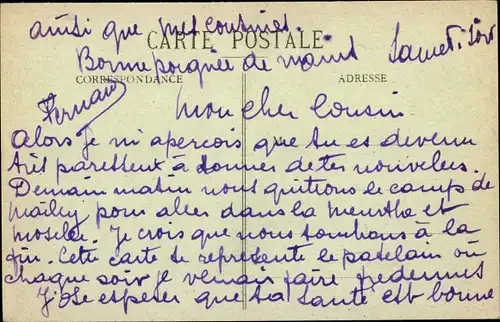 ainsi que mes cousines.
CARTE POSTALE
Bonne poignée de mains
Samedi soir
CORRESPONDANCE
ADRESSE
Fernand
Mon cher Cousin
Alors je m'aperçois que tu es devenu
très paresseux à donner de tes nouvelles.
Demain matin nous quittons le camp de
Mailly pour aller dans la Meurthe et
Moselle. Je crois que nous tombons à la
fin. Cette carte te représente le patelain où
chaque soir je venais faire
J'ose espérer que ta santé est bonne